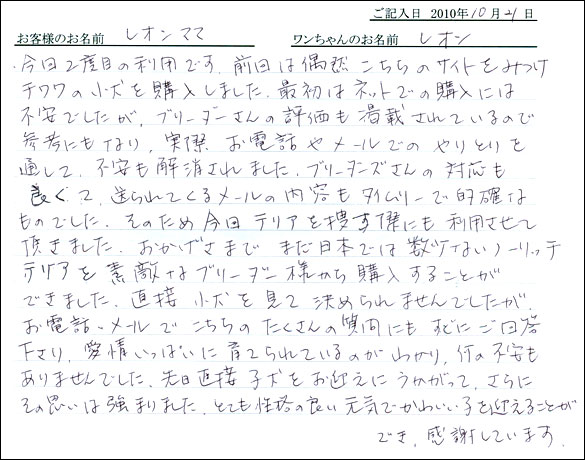 ご記入日 2010年10月21日
お客様のお名前 レオンママ ワンちゃんのお名前 レオン
今回2度目の利用です。前回は偶然こちらのサイトをみつけ
チワワの小犬を購入しました。最初はネットでの購入には
不安でしたが、ブリーダーさんの評価も掲載されているので
参考にもなり、実際お電話やメールでのやりとりを
通して、不安も解消されました。ブリーダーズさんの対応も
良くて、送られてくるメールの内容もタイムリーで的確な
ものでした。そのため今回テリアを捜す際にも利用させて
頂きました。おかげさまでまだ日本では数少ないノーリッチ
テリアを素敵なブリーダー様から購入することが
できました。直接小犬を見て決められませんでしたが、
お電話・メールでこちらのたくさんの質問にもすぐにご回答
下さり、愛情いっぱいに育てられているのがわかり、何の不安も
ありませんでした。先日直接子犬をお迎えにうかがって、さらに
その思いは強まりました。とても性格の良い元気でかわいい子を迎えることが
でき、感謝しています。